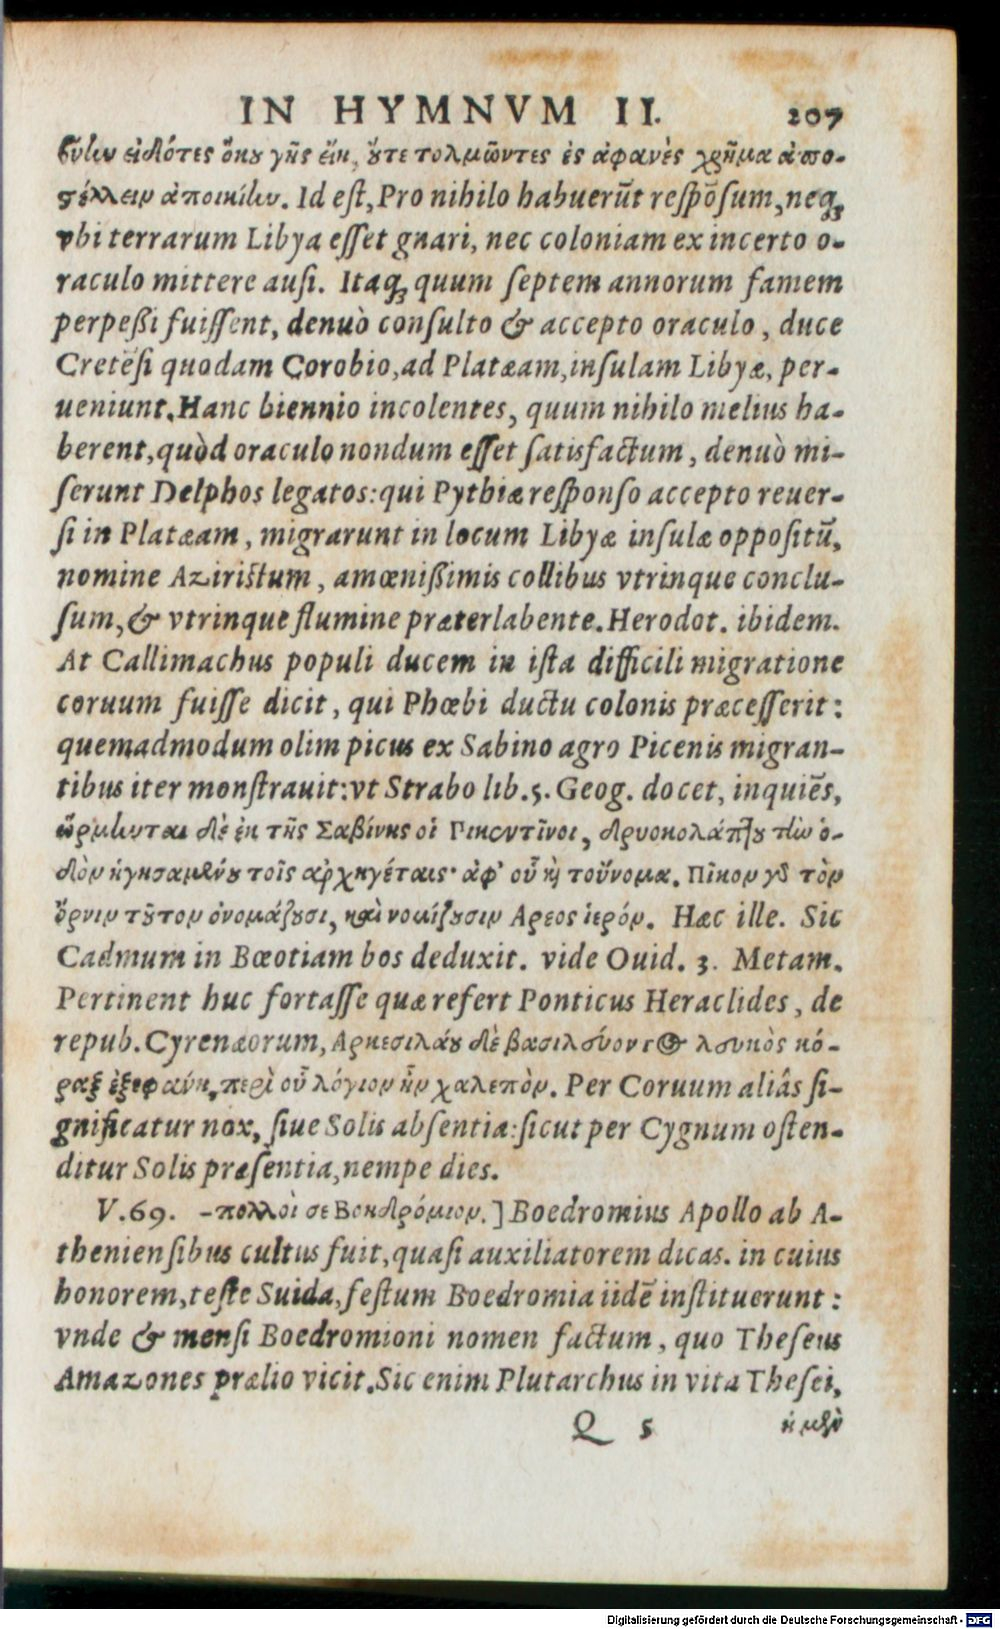 IN HYMNVM II. 207
βύλω εἰδότες ὅκου γῆς εἴη, ὔτε τολμῶντες ἐς ἀφανὲς χρῆμα ἀπο-
στέλλειν ἀποικίλω. Id eſt, Pro nihilo habuerūt reſpōſum, neq;
vbi terrarum Libya eſſet gnari, nec coloniam ex incerto o-
raculo mittere auſi. Itaq; quum ſeptem annorum famem
perpeßi fuiſſent, denuò conſulto & accepto oraculo, duce
Cretēſi quodam Corobio, ad Platæam, inſulam Libyæ, per-
ueniunt. Hanc biennio incolentes, quum nihilo melius ha-
berent, quòd oraculo nondum eſſet ſatisfactum, denuò mi-
ſerunt Delphos legatos: qui Pythiæ reſponſo accepto reuer-
ſi in Platæam, migrarunt in locum Libyæ inſulæ oppoſitū,
nomine Aziriſtum, amœnißimis collibus vtrinque conclu-
ſum, & vtrinque flumine præterlabente. Herodot. ibidem.
At Callimachus populi ducem in iſta difficili migratione
coruum fuiſſe dicit, qui Phœbi ductu colonis præceſſerit:
quemadmodum olim picus ex Sabino agro Picenis migran-
tibus iter monſtrauit: vt Strabo lib. 5. Geog. docet, inquiēs,
ὥρμηνται δὲ ἐκ τῆς Σαβίνης οἱ Πικεντῖνοι, δρυοκολάπτου τὴν ὁ-
δὸν ἡγησαμένου τοῖς ἀρχηγέταις· ἀφ' οὗ καὶ τοὔνομα. Πῖκον γὰρ τὸν
ὄρνιν τῦτον ὀνομάζουσι, καὶ νομίζουσιν Αρεος ἱερόν. Hæc ille. Sic
Cadmum in Bœotiam bos deduxit. vide Ouid. 3. Metam.
Pertinent huc fortaſſe quæ refert Ponticus Heraclides, de
repub. Cyrenæorum, Αρκεσιλάου δὲ βασιλεύοντος λευκὸς κό-
ραξ ἐξεφαύη, περὶ οὗ λόγιον ἦν χαλεπὸν. Per Coruum aliâs ſi-
gnificatur nox, ſiue Solis abſentia: ſicut per Cygnum oſten-
ditur Solis præſentia, nempe dies.
V. 69. -πολλοὶ σε Βοηδρόμιον.] Boedromius Apollo ab A-
thenienſibus cultus fuit, quaſi auxiliatorem dicas. in cuius
honorem, teſte Suida, feſtum Boedromia iidē inſtituerunt:
vnde & menſi Boedromioni nomen factum, quo Theſeus
Amazones prælio vicit. Sic enim Plutarchus in vita Theſei,
Q 5 ἡ μὲν
Digitalisierung gefördert durch die Deutsche Forschungsgemeinschaft - DFG